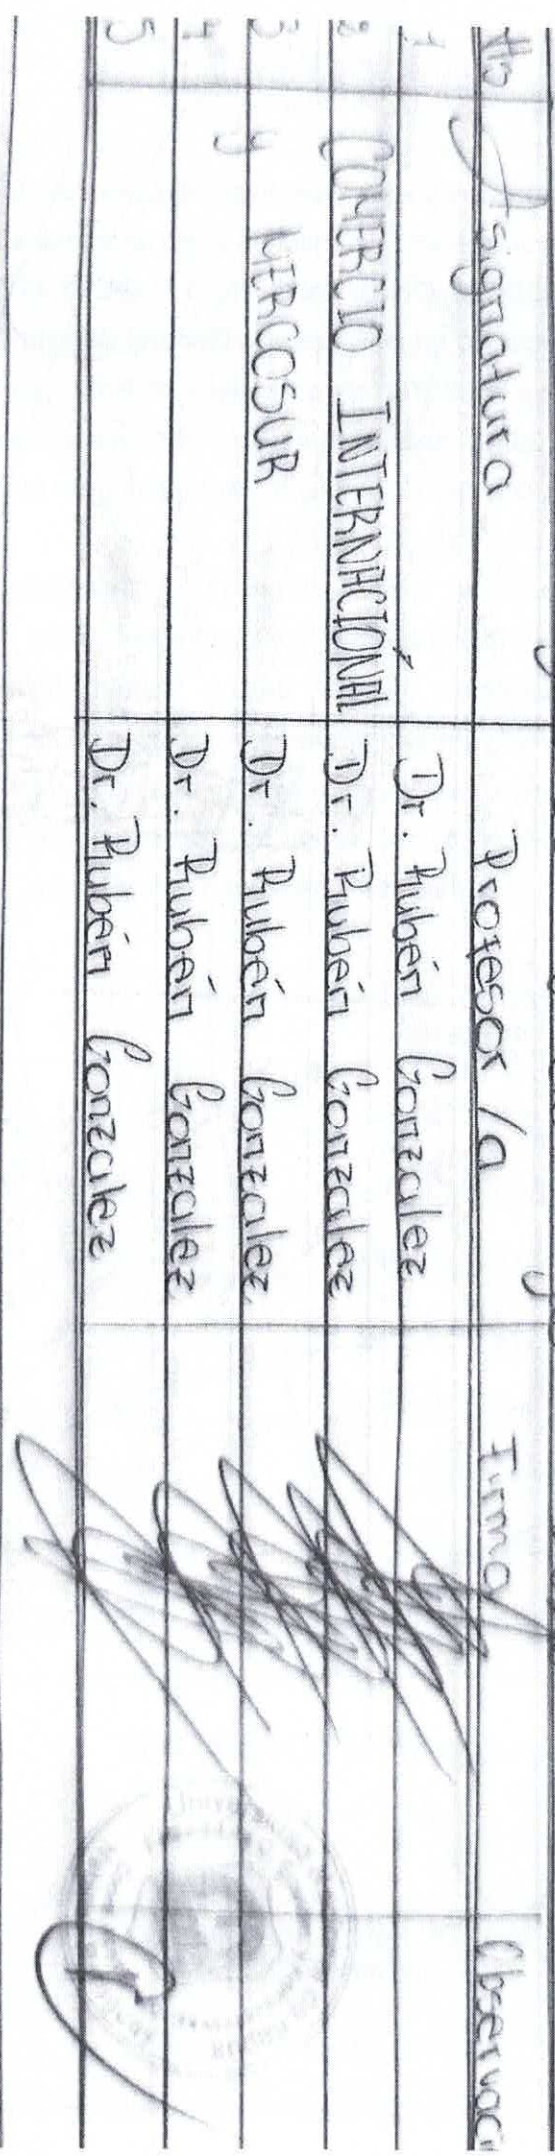 No Asignatura Profesor/a Firma Observaci
1 Dr. Rubén Gonzalez
2 COMERCIO INTERNACIONAL Dr. Rubén Gonzalez
3 y MERCOSUR Dr. Rubén Gonzalez
4 Dr. Rubén Gonzalez
5 Dr. Rubén Gonzalez